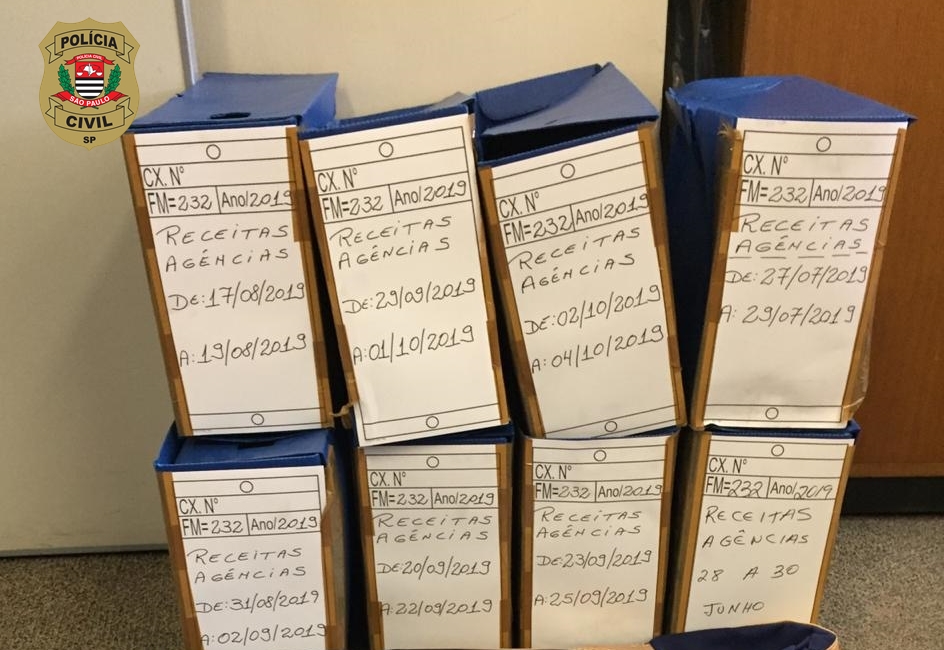 POLÍCIA
POLÍCIA CIVIL
SÃO PAULO
CIVIL
SP
CX. Nº
FM=232 Ano/2019
RECEITAS
AGÉNCIAS
DE:17/08/2019
A:19/08/2019
CX. Nº
FM=232 Ano/2019
RECEITAS
AGÉNCIAS
DE:29/09/2019
A:01/10/2019
CX. Nº
FM=232 Ano/2019
RECEITAS
AGÉNCIAS
DE:02/10/2019
A:04/10/2019
CX. Nº
FM=232 Ano/2019
RECEITAS
AGÉNCIAS
DE:27/07/2019
A:29/07/2019
CX. Nº
FM=232 Ano/2019
RECEITAS
AGÉNCIAS
DE:31/08/2019
A:02/09/2019
CX. Nº
FM=232 Ano/2019
RECEITAS
AGÉNCIAS
DE:20/09/2019
A:22/09/2019
CX. Nº
FM=232 Ano/2019
RECEITAS
AGÉNCIAS
DE:23/09/2019
A:25/09/2019
CX. Nº
FM=232 Ano/2019
RECEITAS
AGÊNCIAS
28 A 30
JUNHO